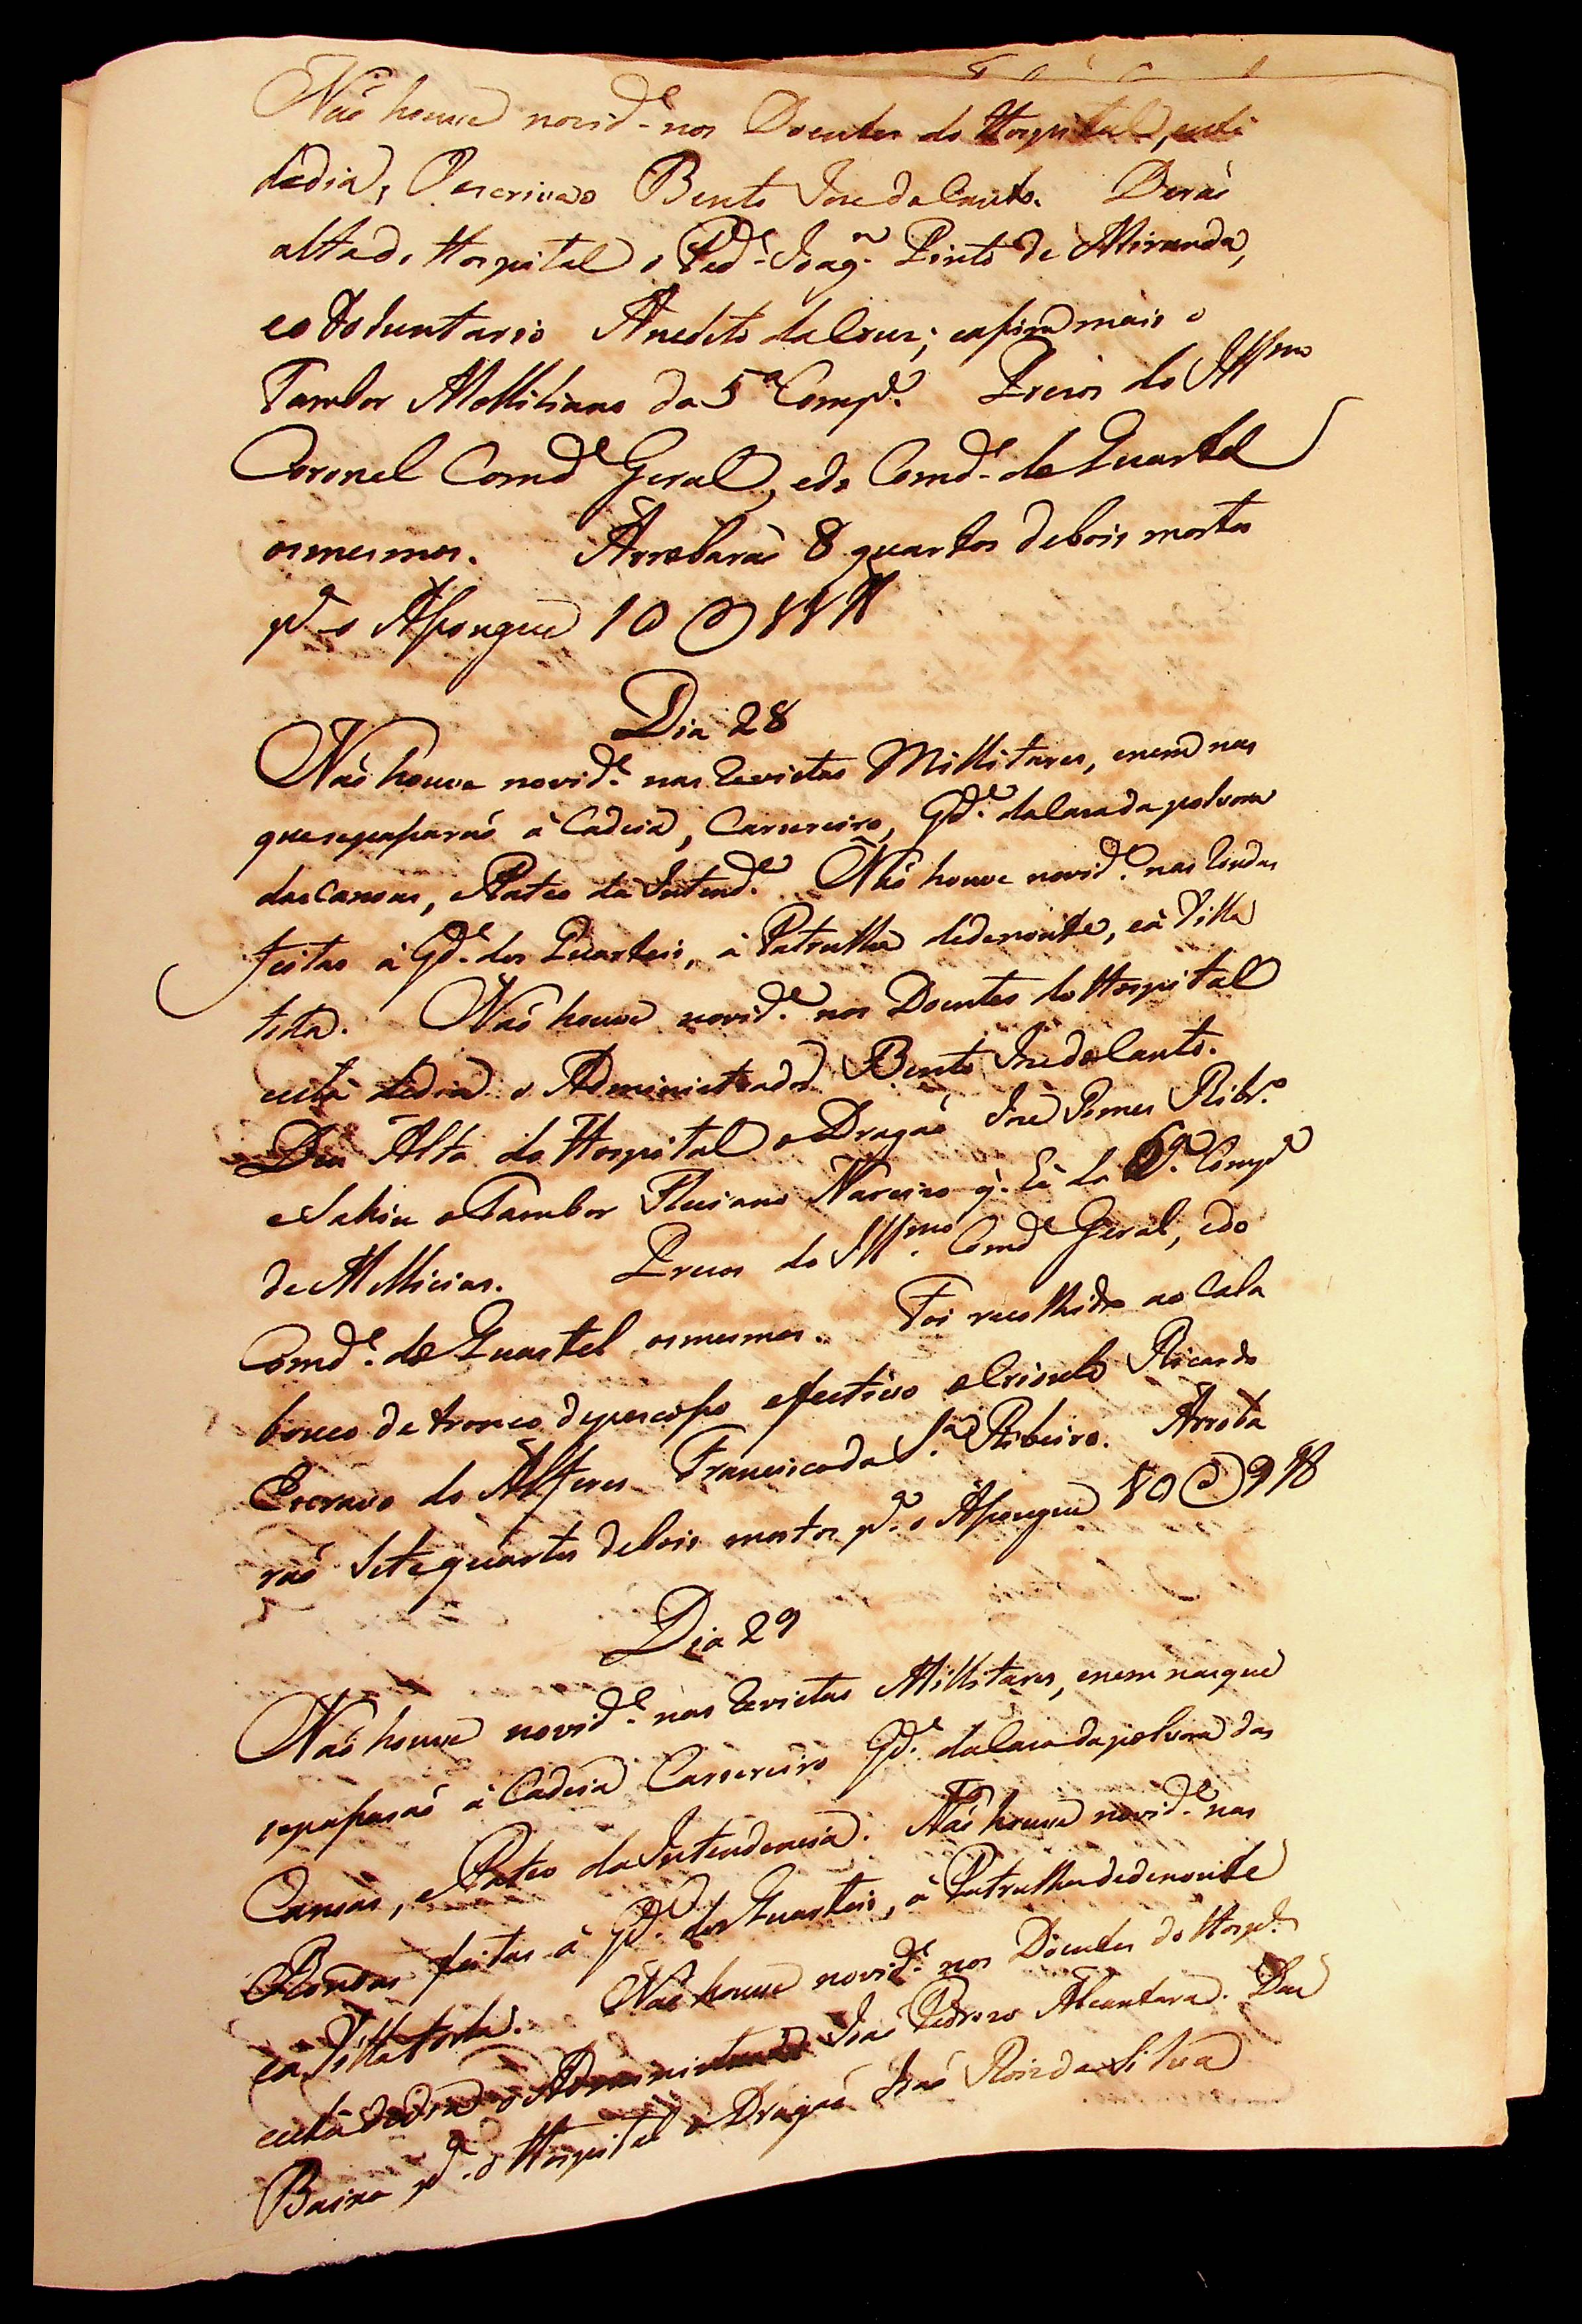 Não houve novid.e nos Doentes do Hospital, está
dedia, O escrivão Bento Jose do Canto. Derão
alta do Hospital o Ped.e Joaq.m Pinto de Miranda,
eo Voluntario Anecleto da Cruz; easim mais o
Tambor Maximiano da 5ª Comp.ª Prezos do Ill.mo
Coronel Comd.e Geral, edo Comd.e do Quartel
osmesmos. Arrobarão 8 quartos debois mortos
p.ª o Asougue 10 @
Dia 28
Não houve novid.e nas Revistas Millitares, enem nas
quesepasarão á Cadeia, Carsereiro, G.de daCaza da polvora
das Canoas, e Pateo da Intend.ª Não houve novid.e nas Rondas
feitas á G.de dos Quarteis, á Patrulha dedenoute, eá Villa
tota. Não houve novid.e nos Doentes do Hospital
está dedia o Administrador Bento Jose do Canto.
Deu Alta do Hospital o Dragão Jose Gomes Ribr.º
e Sahiu o Tambor Luciano Narcizo q. hé da 6ª Comp.ª
de Millicias. Prezos do Ill.mo Comd.e Geral, edo
Comd.e do Quartel osmesmos. Foi recolhido ao Cala
bouco de tronco depescoso efectivo o Crioulo Ricardo
Escravo do Alferes Francisco da S.ª Ribeiro. Arroba
rão Sete quartos debois mortos p.ª o Asougue 10 @ 9 lb
Dia 29
Não houve novid.e nas Revistas Millitares, enem nasque
sepasarão á Cadeia Carsereiro G.de daCaza dapolvora das
Canoas, e Pateo da Intendencia. Não houve novid.e nas
Rondas feitas á G.de dos Quarteis, á Patrulha dedenoute
eá Villa tota. Não houve novid.e nos Doentes do Hosp.al
está dedia o Administrador João Pedrozo Alcantara. Deu
Baixa p.ª o Hospital o Dragão João Roiz da Silva